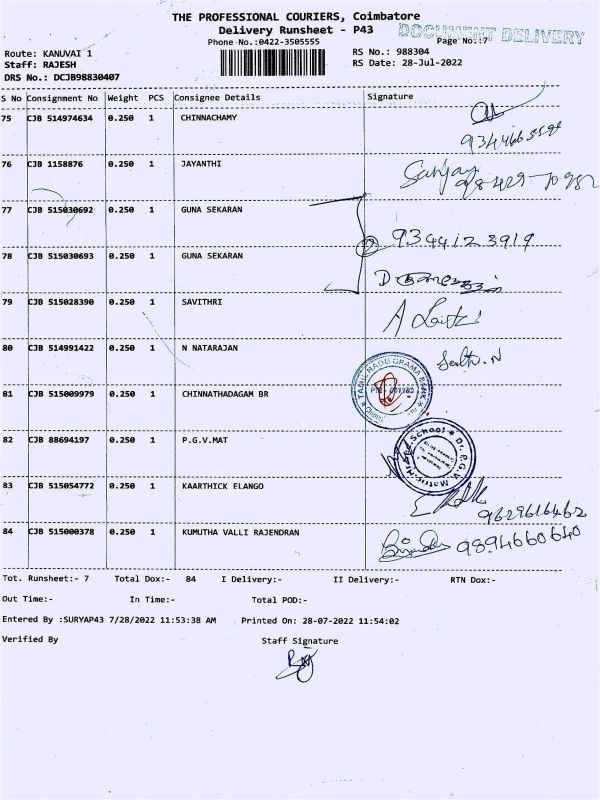 THE PROFESSIONAL COURIERS, Coimbatore
Delivery Runsheet - P43
DOCUMENT DELIVERY
Phone No.:0422-3505555
Page No.:7
Route: KANUVAI 1
RS No.: 988304
Staff: RAJESH
RS Date: 28-Jul-2022
DRS No.: DCJB98830407
S No Consignment No Weight PCS Consignee Details Signature
75 CJB 514974634 0.250 1 CHINNACHAMY
76 CJB 1158876 0.250 1 JAYANTHI
Sanjay
77 CJB 515030692 0.250 1 GUNA SEKARAN
9344123919
78 CJB 515030693 0.250 1 GUNA SEKARAN
79 CJB 515028390 0.250 1 SAVITHRI
80 CJB 514991422 0.250 1 N NATARAJAN
TAMIL NADU GRAMA BANK
81 CJB 515009979 0.250 1 CHINNATHADAGAM BR
82 CJB 88694197 0.250 1 P.G.V.MAT
Dr. P.G.V. Matric.Hr.Sec.School
83 CJB 515054772 0.250 1 KAARTHICK ELANGO
9629616462
84 CJB 515000378 0.250 1 KUMUTHA VALLI RAJENDRAN
9894660640
Tot. Runsheet:- 7 Total Dox:- 84 I Delivery:- II Delivery:- RTN Dox:-
Out Time:- In Time:- Total POD:-
Entered By :SURYAP43 7/28/2022 11:53:38 AM Printed On: 28-07-2022 11:54:02
Verified By Staff Signature